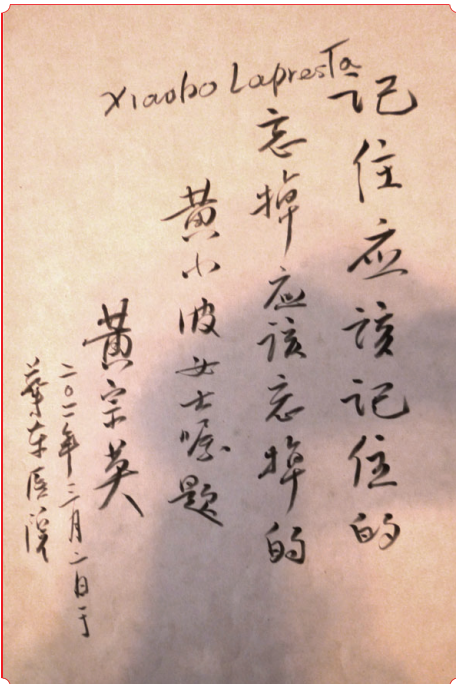 Xiaobo LapresTa
记住应该记住的
忘掉应该忘掉的
黄小波女士嘱题
黄宗英
二〇一一年三月二日于
华东医院